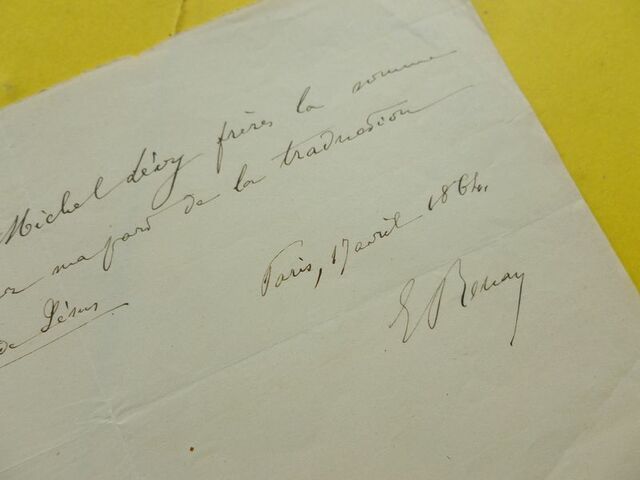 Michel Lévy frères la somme
ma part de la traduction
de Jésus
Paris, 17 avril 1864.
E Renan